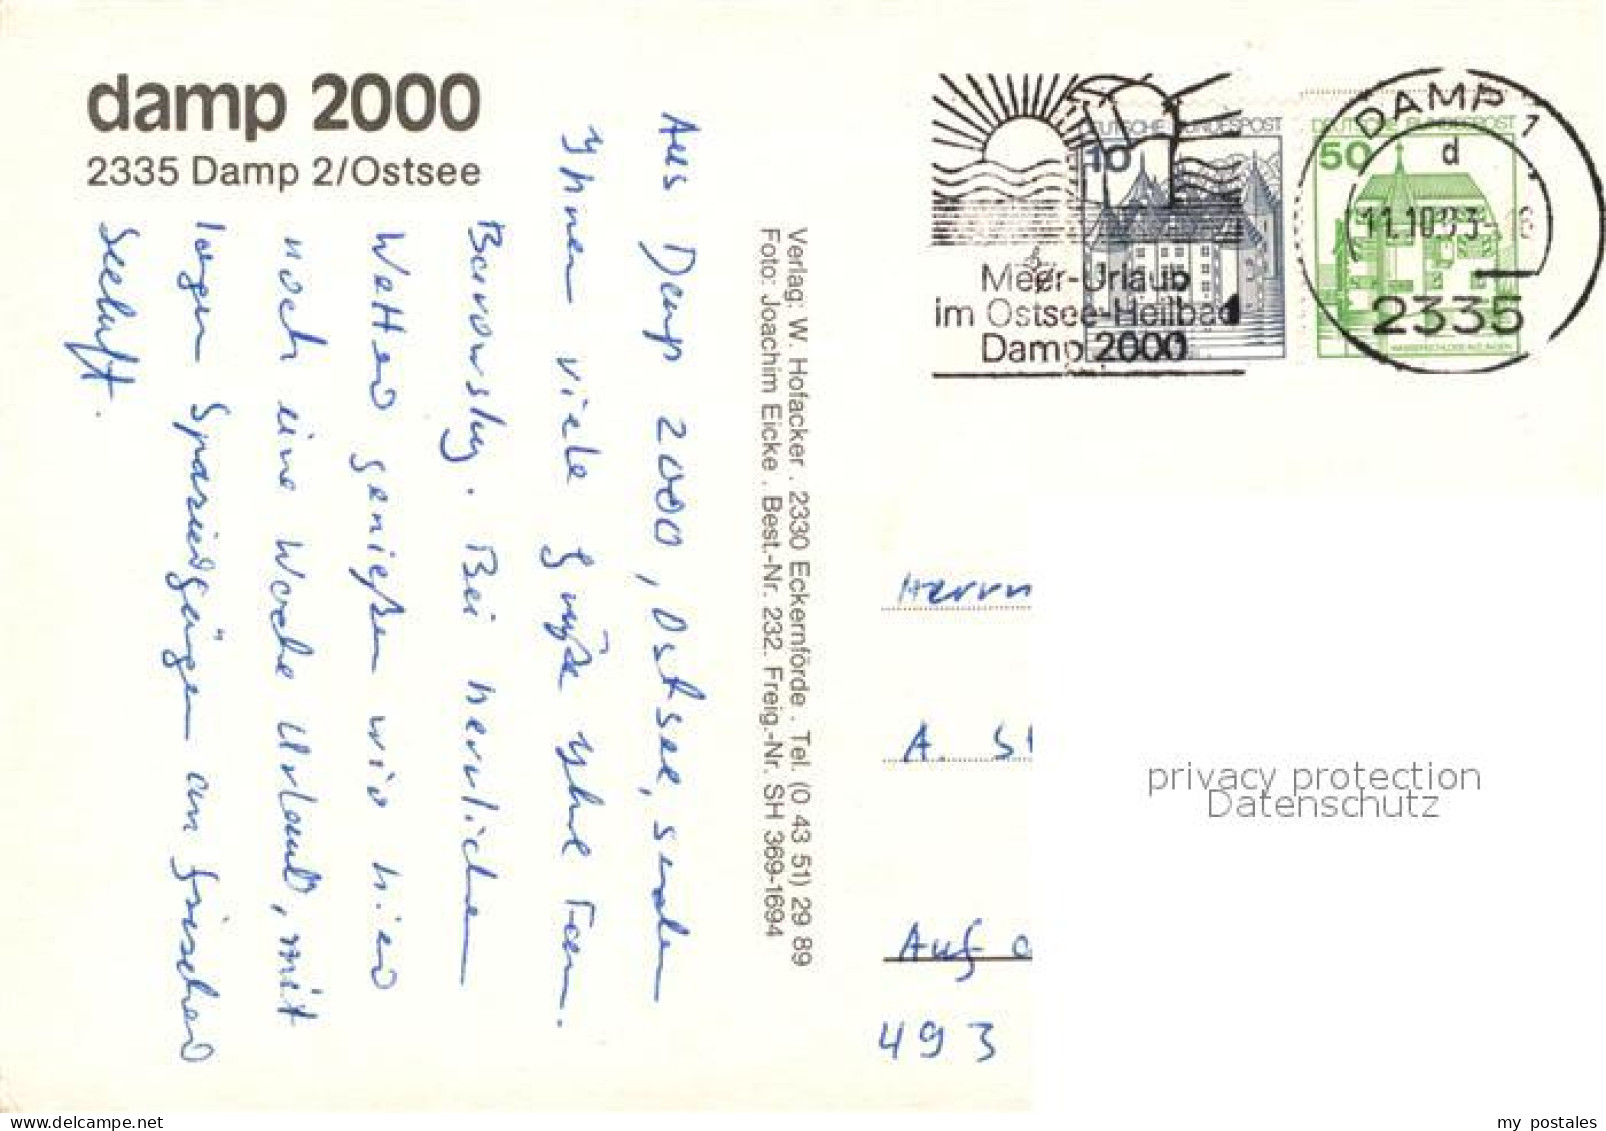 damp 2000
2335 Damp 2/Ostsee
Aus Damp 2000, Ostsee, senden
Ihnen viele Grüße Ihre Fam.
Bei herrlichem
Wetter genießen wir hier
noch eine Woche Urlaub, mit
langen Spaziergängen an frischer
Seeluft.
Verlag: W. Hofacker . 2330 Eckernförde . Tel. (0 43 51) 29 89
Foto: Joachim Eicke . Best.-Nr. 232. Freig.-Nr. SH 369-1694
Meer-Urlaub
im Ostsee-Heilbad
Damp 2000
DEUTSCHE BUNDESPOST
10
DEUTSCHE BUNDESPOST
50
DAMP 1
d
11.10.83
2335
Herrn
A. St
Auf d
493
privacy protection
Datenschutz
my postales
www.delcampe.net